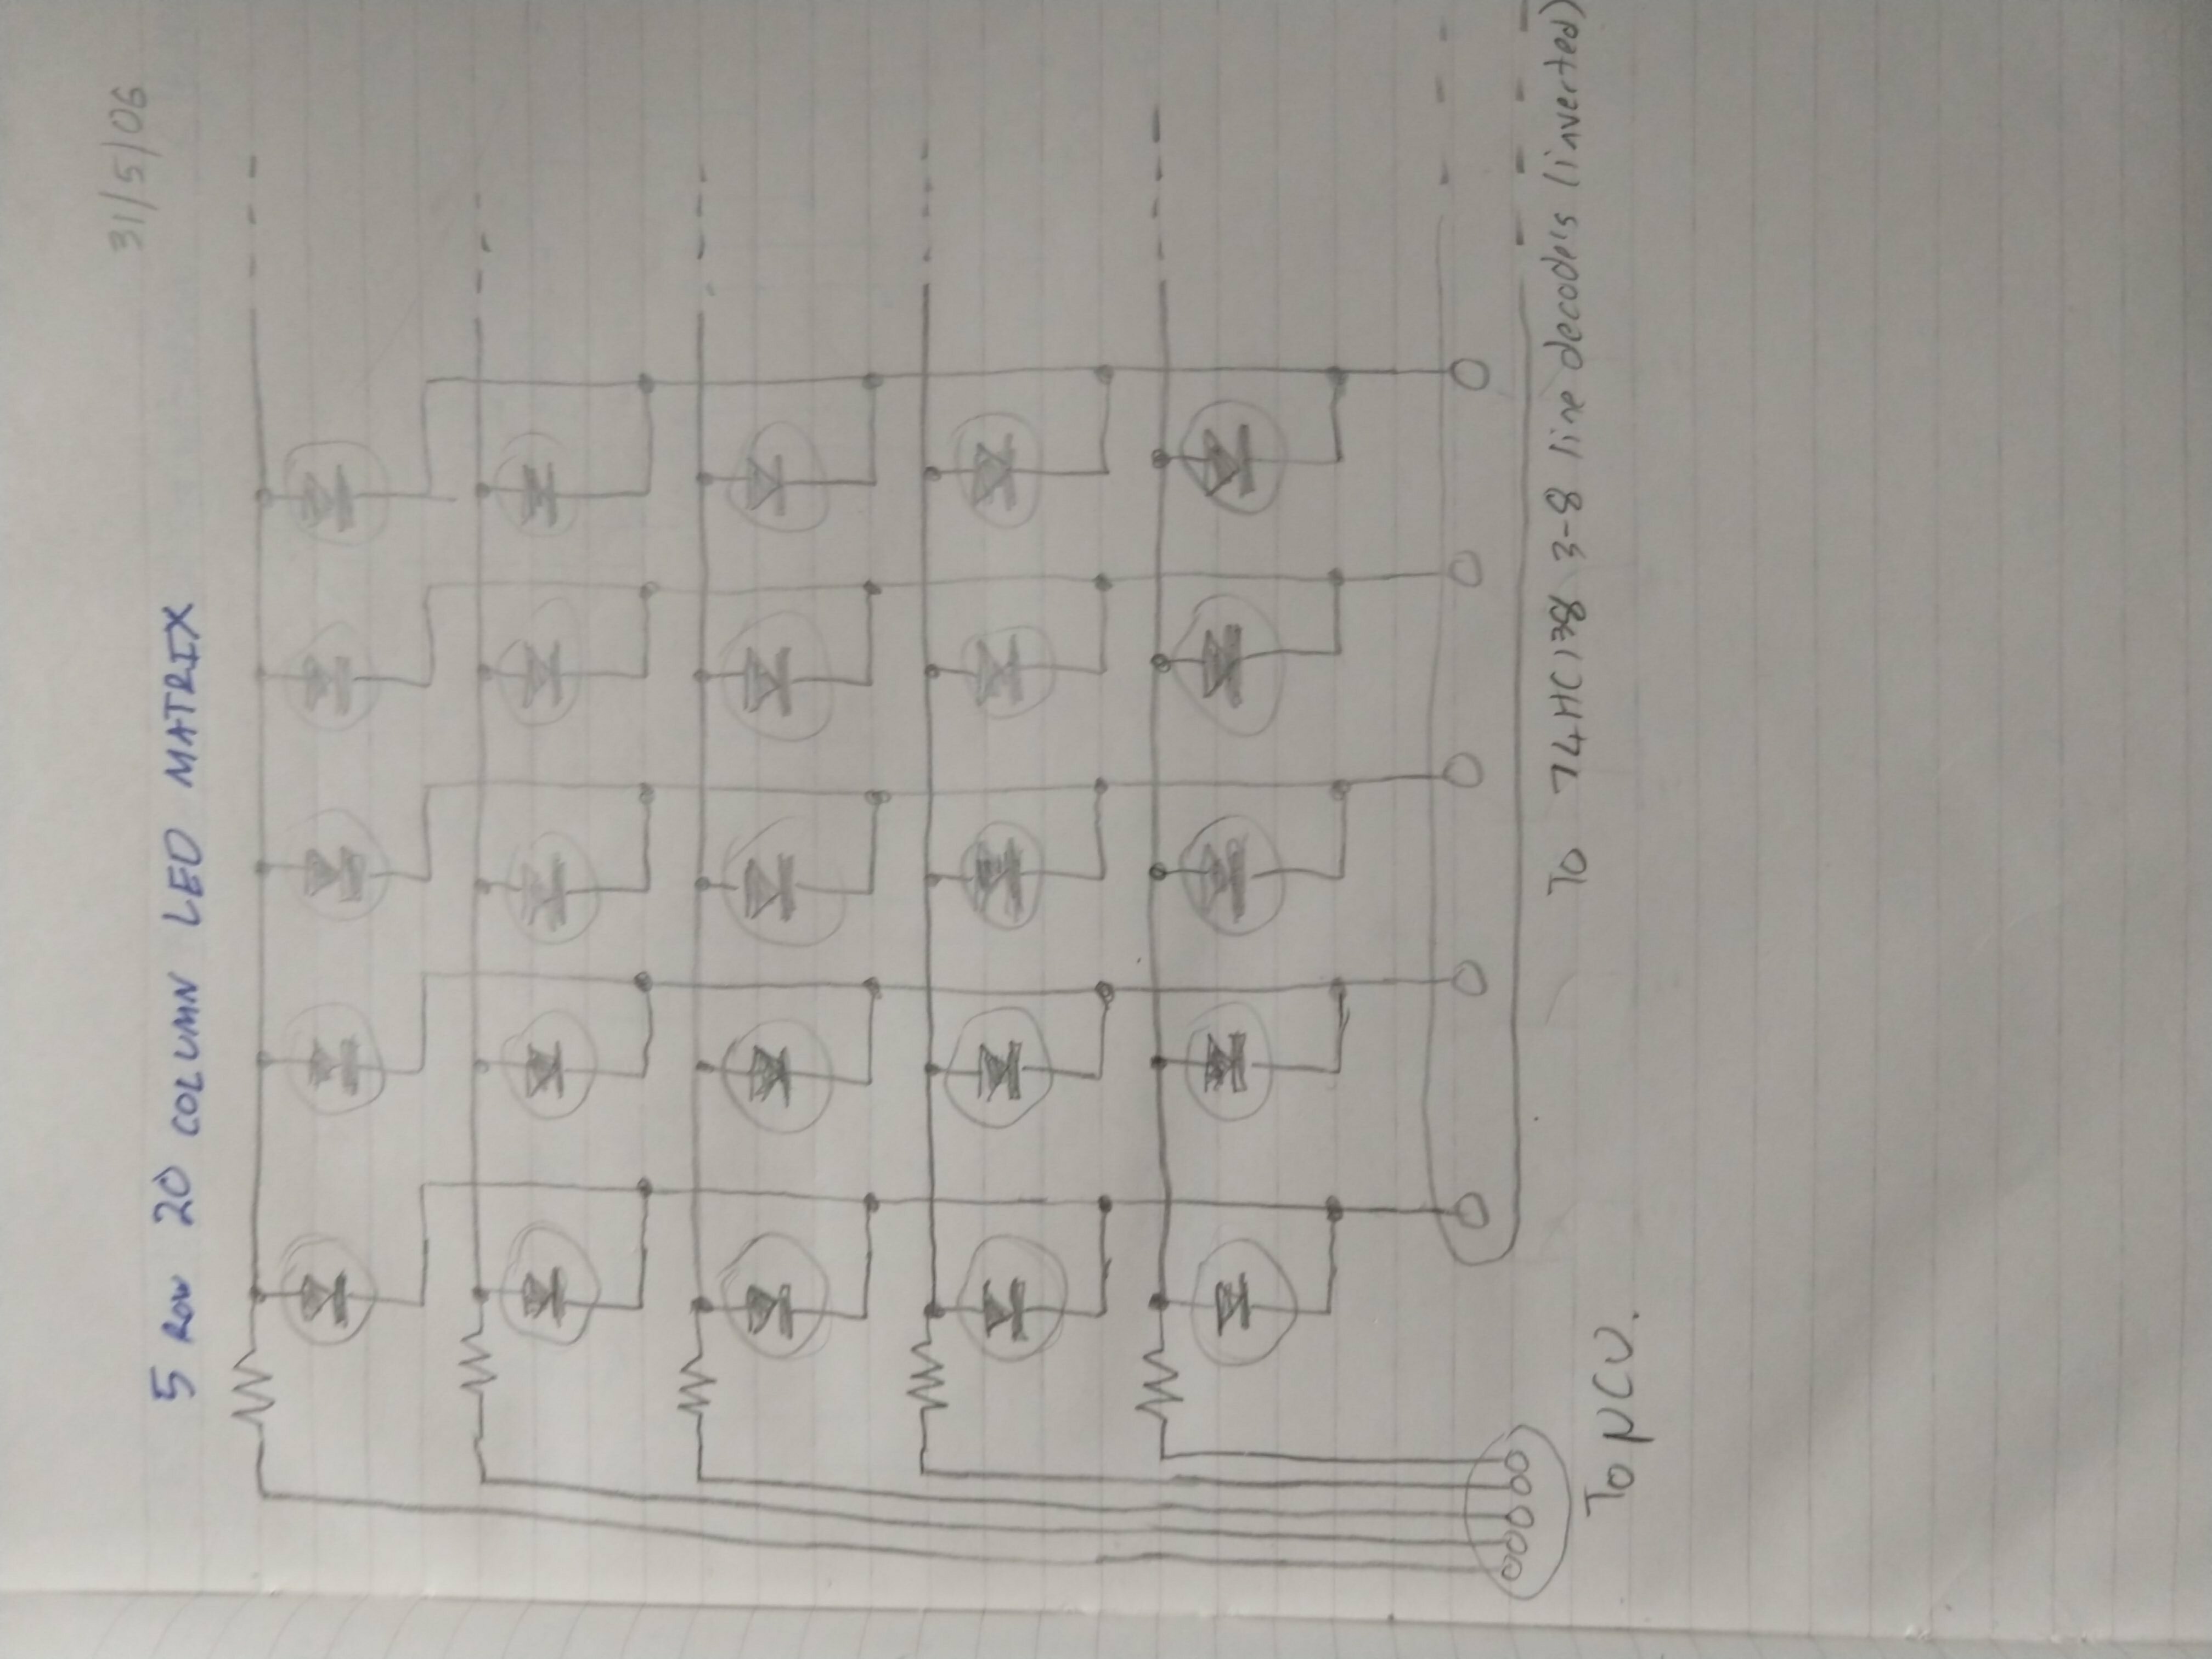 31/5/06
5 ROW 20 COLUMN LED MATRIX
To 74HC138 3-8 line decoders (inverted)
To µCU.